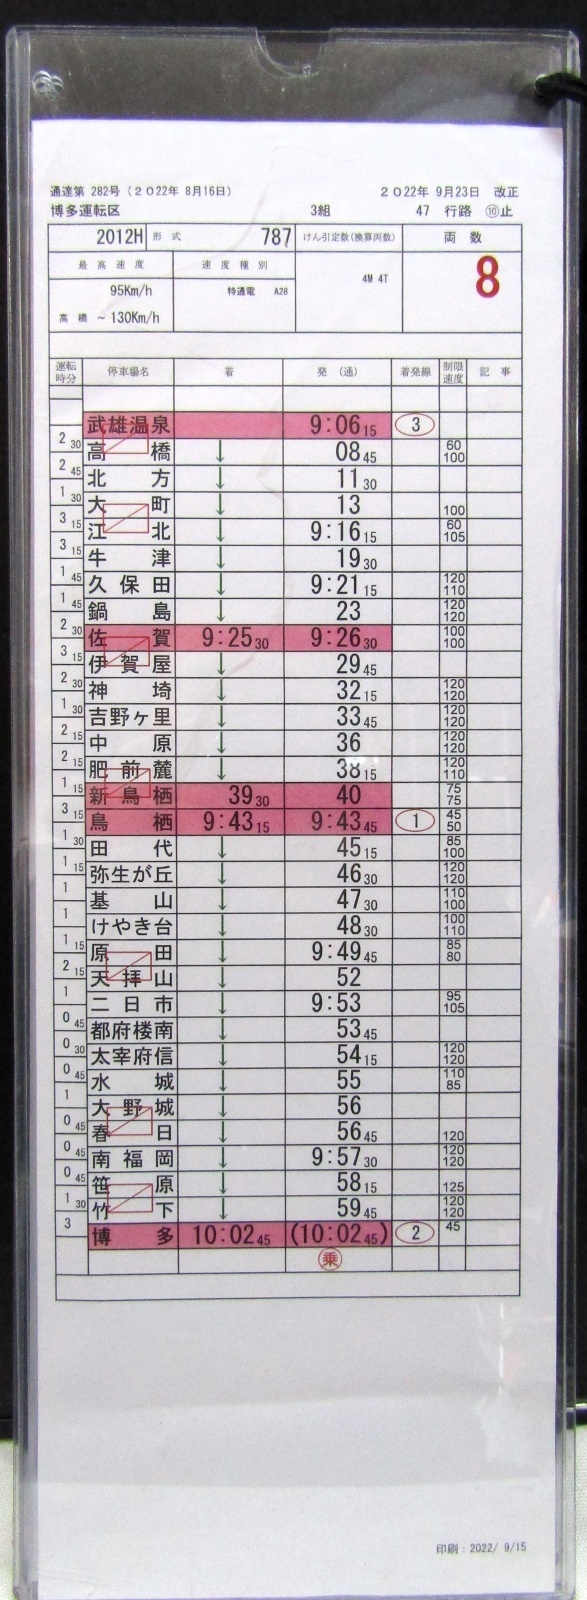 通達第 282号（２０２２年 8月16日） ２０２２年 9月23日 改正
博多運転区 3組 47 行路 ⑩止
2012H 形式 787 けん引定数(換算両数) 両数
最高速度 速度種別 4M 4T 8
95Km/h 特通電 A28
高橋 ~ 130Km/h
運転時分 停車場名 着 発（通） 着発線 制限速度 記事
武雄温泉 9:06 15 3
2 30
高橋 ↓ 08 45 60 100
2 45
北方 ↓ 11 30
1 30
大町 ↓ 13 100
3 15
江北 ↓ 9:16 15 60 105
3 15
牛津 ↓ 19 30
1 45
久保田 ↓ 9:21 15 120 110
1 45
鍋島 ↓ 23 120 120
2 30
佐賀 9:25 30 9:26 30 100 100
3 15
伊賀屋 ↓ 29 45
2 30
神埼 ↓ 32 15 120 120
1 30
吉野ヶ里 ↓ 33 45 120 120
2 15
中原 ↓ 36 120 120
2 15
肥前麓 ↓ 38 15 120 110
1 15
新鳥栖 39 30 40 75 75
3 15
鳥栖 9:43 15 9:43 45 1 45 50
1 30
田代 ↓ 45 15 85 100
1 15
弥生が丘 ↓ 46 30 120 120
1
基山 ↓ 47 30 110 100
1
けやき台 ↓ 48 30 100 110
1 15
原田 ↓ 9:49 45 85 80
2 15
天拝山 ↓ 52
1
二日市 ↓ 9:53 95 105
0 45
都府楼南 ↓ 53 45
0 30
太宰府信 ↓ 54 15 120 120
0 45
水城 ↓ 55 110 85
1
大野城 ↓ 56
0 45
春日 ↓ 56 45 120
0 45
南福岡 ↓ 9:57 30 120 120
0 45
笹原 ↓ 58 15 125
1 30
竹下 ↓ 59 45 120 120
3
博多 10:02 45 (10:02 45) 2 45
乗
印刷：2022/ 9/15